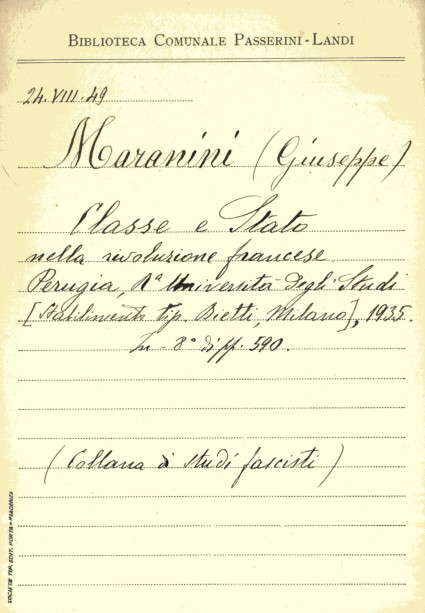 BIBLIOTECA COMUNALE PASSERINI-LANDI
24.VIII.49
Maranini (Giuseppe)
Classe e Stato
nella rivoluzione francese.
Perugia, Rª Università Degli Studi
[Stabilimento tip. Bietti, Milano], 1935.
In-8° di pp. 590.
(Collana di studi fascisti)
SOCIETÀ TIP. EDIT. PORTA-PIACENZA